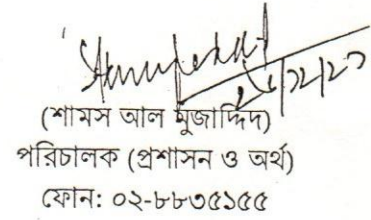 (শামস আল মুজাদ্দিদ)
পরিচালক (প্রশাসন ও অর্থ)
ফোন: ০২-৮৮৩৫১৫৫